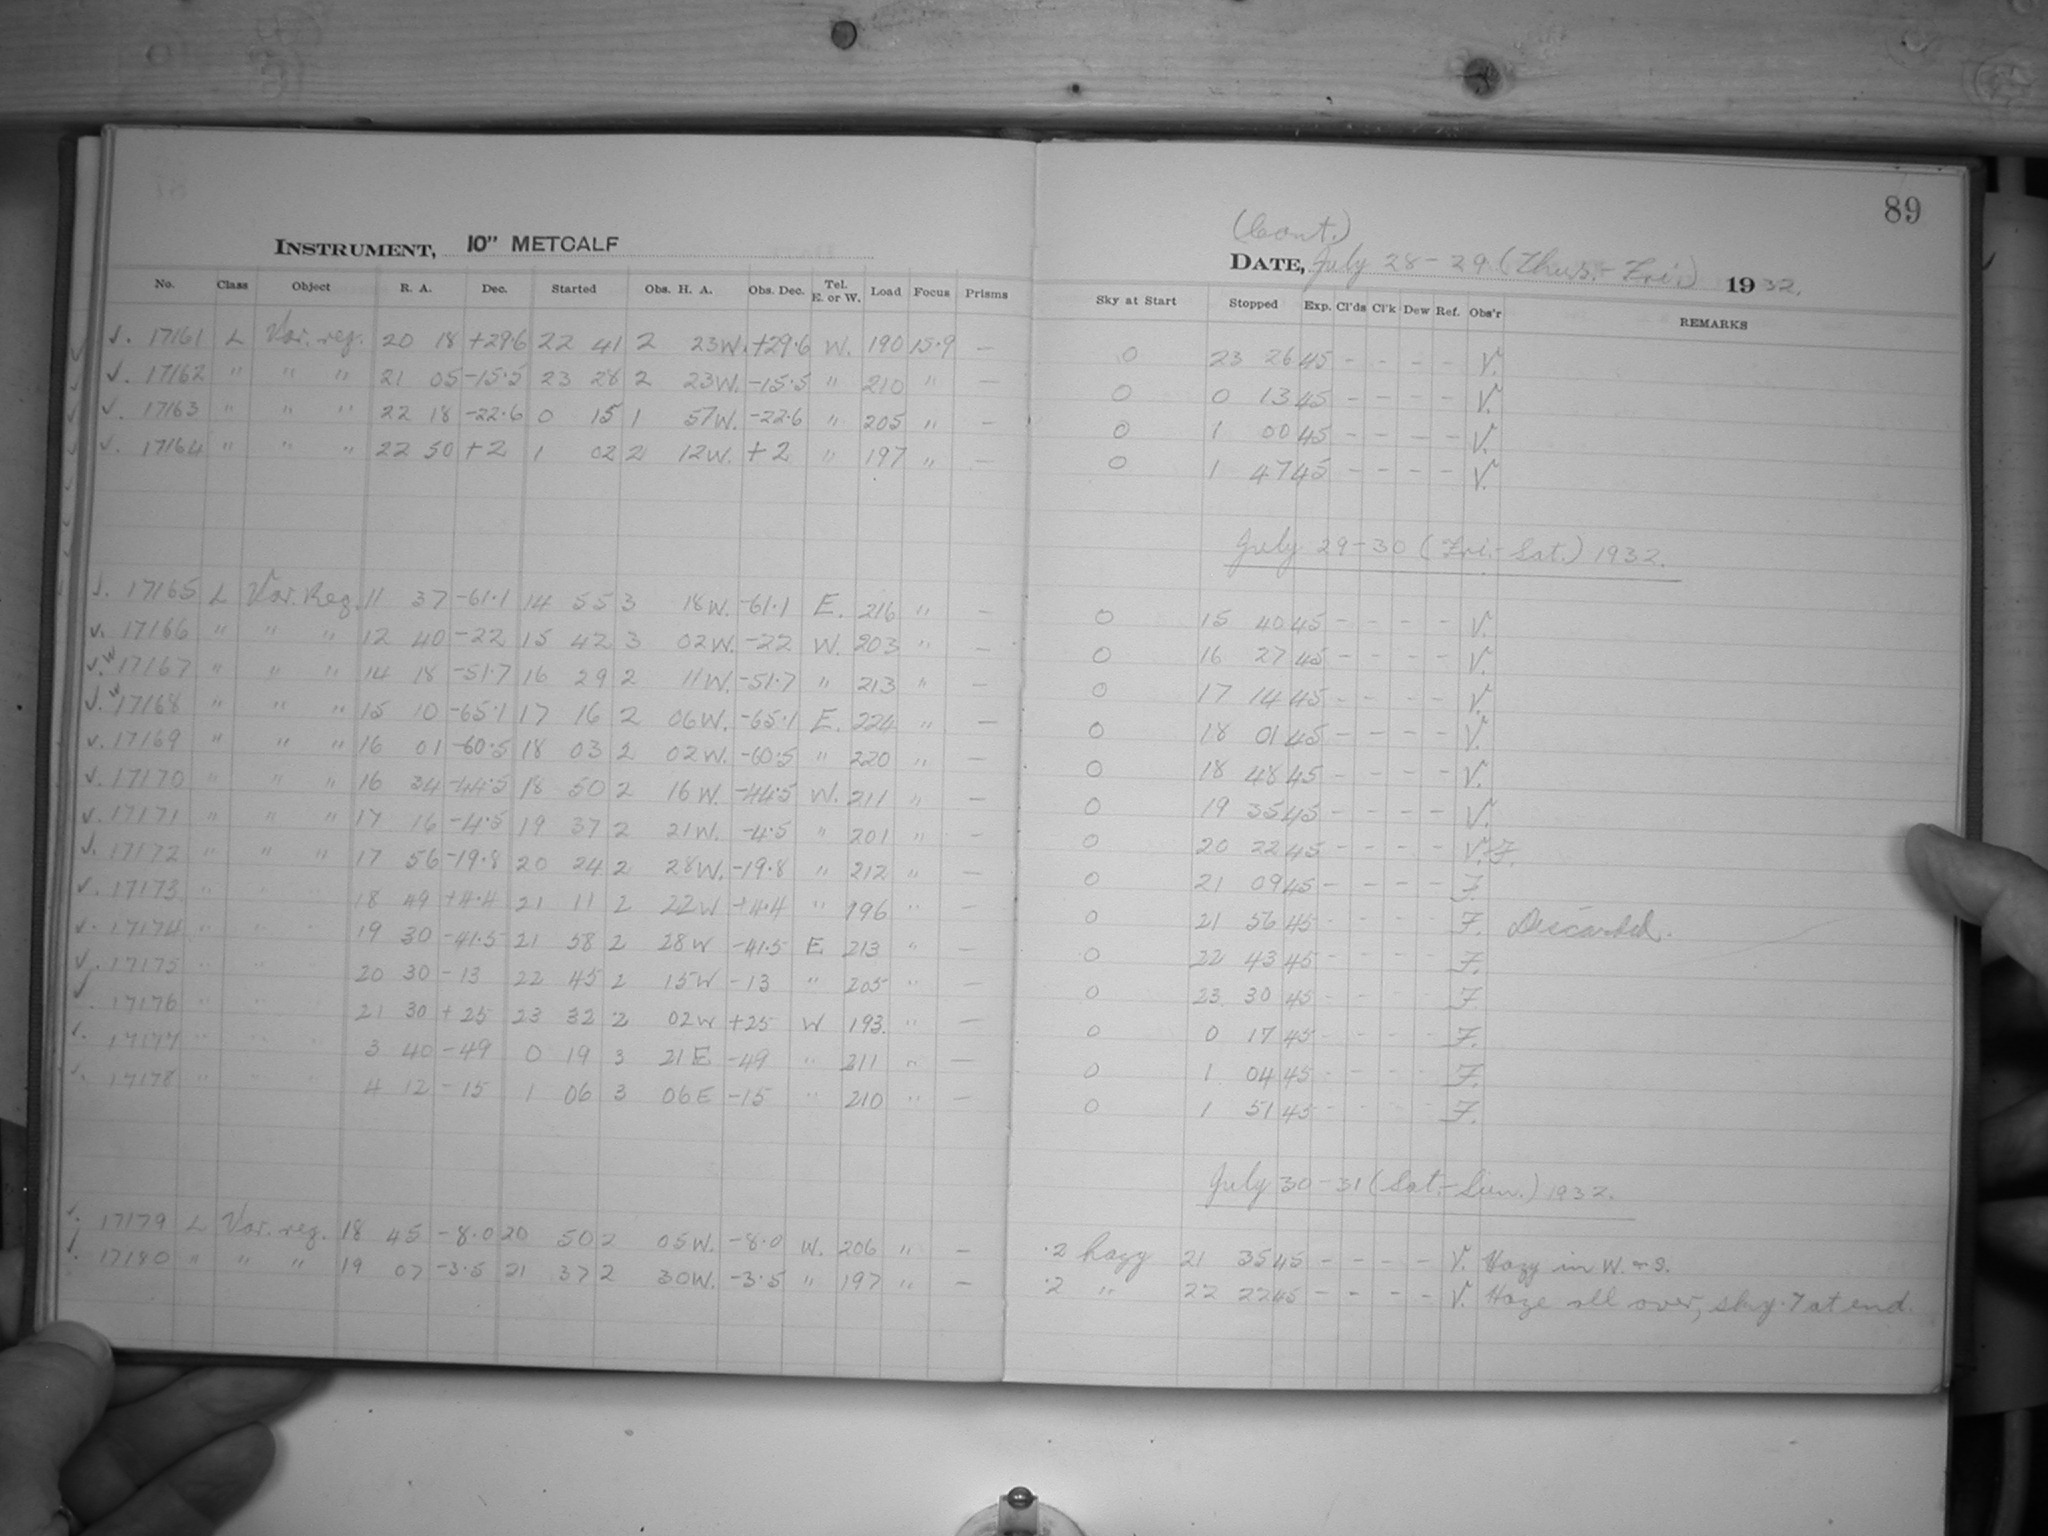 89
(Cont.)
INSTRUMENT, 10" METCALF DATE, July 28-29 (Thurs.-Fri.) 1932.
No. Class Object R. A. Dec. Started Obs. H. A. Obs. Dec. Tel. E. or W. Load Focus Prisms Sky at Start Stopped Exp. Cl'ds Cl'k Dew Ref. Obs'r REMARKS
√. 17161 L Var. reg. 20 18 +29.6 22 41 2 23W. +29.6 W. 190 15.9 — 0 23 26 45 - - - - V.
√. 17162 " " " 21 05 -15.5 23 28 2 23W. -15.5 " 210 " — 0 0 13 45 - - - - V.
√. 17163 " " " 22 18 -22.6 0 15 1 57W. -22.6 " 205 " — 0 1 00 45 - - - - V.
√. 17164 " " " 22 50 +2 1 02 2 12W. +2 " 197 " — 0 1 47 45 - - - - V.
July 29-30 (Fri.-Sat.) 1932.
√. 17165 L Var. Reg. 11 37 -61.1 14 55 3 18W. -61.1 E. 216 " — 0 15 40 45 - - - - V.
√. 17166 " " " 12 40 -22 15 42 3 02W. -22 W. 203 " — 0 16 27 45 - - - - V.
√. W 17167 " " " 14 18 -51.7 16 29 2 11W. -51.7 " 213 " — 0 17 14 45 - - - - V.
√. W 17168 " " " 15 10 -65.1 17 16 2 06W. -65.1 E. 224 " — 0 18 01 45 - - - - V.
√. 17169 " " " 16 01 -60.5 18 03 2 02W. -60.5 " 220 " — 0 18 48 45 - - - - V.
√. 17170 " " " 16 34 -44.5 18 50 2 16W. -44.5 W. 211 " — 0 19 35 45 - - - - V.
√. 17171 " " " 17 16 -4.5 19 37 2 21W. -4.5 " 201 " — 0 20 22 45 - - - - V.F.
√. 17172 " " " 17 56 -19.8 20 24 2 28W. -19.8 " 212 " — 0 21 09 45 - - - - F.
√. 17173 " " " 18 49 +4.4 21 11 2 22W +4.4 " 196 " — 0 21 56 45 - - - - F. Discarded.
√. 17174 " " " 19 30 -41.5 21 58 2 28W -41.5 E 213 " — 0 22 43 45 - - - - F.
√. 17175 " " " 20 30 -13 22 45 2 15W -13 " 205 " — 0 23 30 45 - - - - F.
√. 17176 " " " 21 30 +25 23 32 2 02W +25 W 193. " — 0 0 17 45 - - - - F.
√. 17177 " " " 3 40 -49 0 19 3 21E -49 " 211 " — 0 1 04 45 - - - - F.
√. 17178 " " " 4 12 -15 1 06 3 06E -15 " 210 " — 0 1 51 45 - - - - F.
July 30-31 (Sat.-Sun.) 1932.
√. 17179 L Var. reg. 18 45 -8.0 20 50 2 05W. -8.0 W. 206 " — .2 hazy 21 35 45 - - - - V. Hazy in W. & S.
√. 17180 " " " 19 07 -3.5 21 37 2 30W. -3.5 " 197 " — .2 " 22 22 45 - - - - V. Haze all over, sky .7 at end.